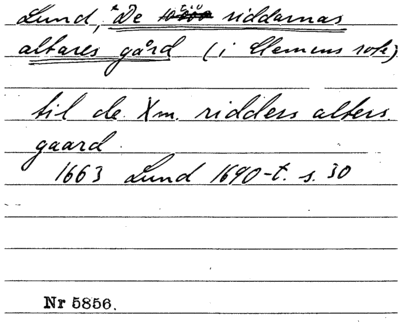 Lund, *De riddarnas
altares gård (i Clemens rote)
til de Xm. ridders alters
gaard.
1663 Lund 1690-t. s. 30
Nr 5856.